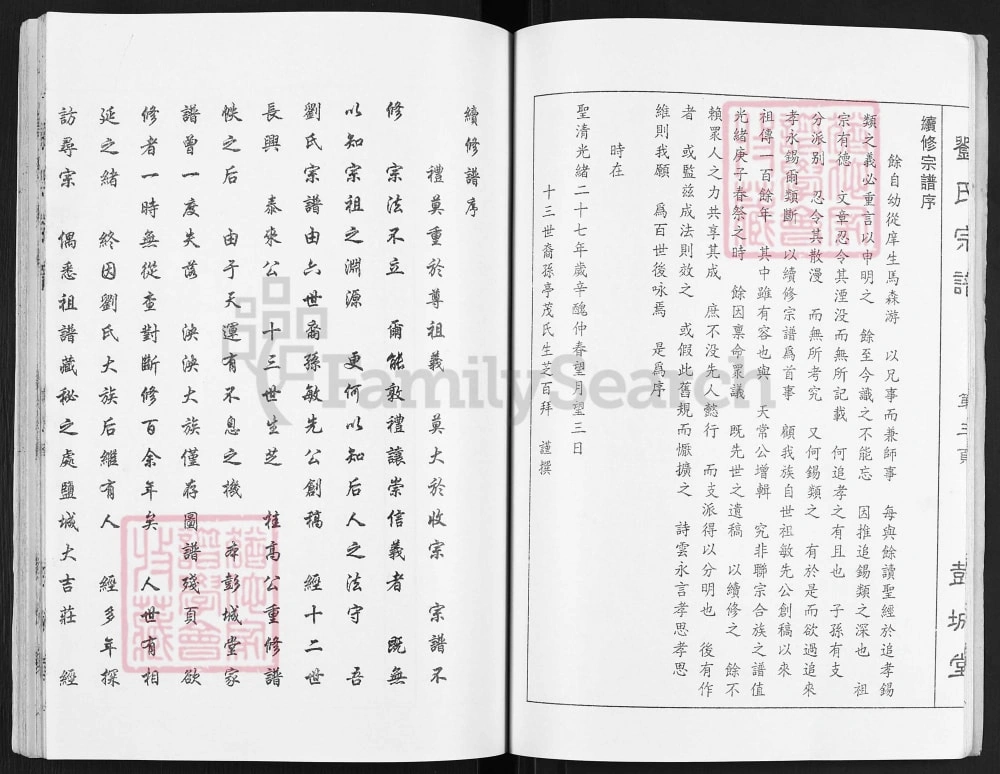 劉氏宗譜 第三頁 彭城堂
續修宗譜序
餘自幼從庠生馬森游 以兄事而兼師事 每與餘讀聖經於追孝錫
類之義必重言以申明之 餘至今識之不能忘 因推追錫類之深也 祖
宗有德 文章忍令其湮没而無所記載 何追孝之有且也 子孫有支
分派别 忍令其散漫 而無所考究 又何錫類之 有於是而欲過追來
孝永錫爾類斷 以續修宗譜爲首事 顧我族自世祖敏先公創稿以來
祖傳一百餘年 其中雖有容也與 天常公增輯 究非聯宗合族之譜值
光緒庚子春祭之時 餘因禀命眾議 既先世之遺稿 以續修之 餘不
賴眾人之力共享其成 庶不没先人懿行 而支派得以分明也 後有作
者 或監兹成法則效之 或假此舊規而懨擴之 詩雲永言孝思孝思
維則我願 爲百世後咏焉 是爲序
時在
聖清光緒二十七年歲辛醜仲春望月望三日
十三世裔孫亭茂氏生芝百拜 謹撰
續修譜序
禮莫重於尊祖義 莫大於收宗 宗譜不
修 宗法不立 爾能敦禮讓崇信義者 既無
以知宗祖之淵源 更何以知后人之法守 吾
劉氏宗譜由六世裔孫敏先公創稿 經十二世
長興 泰來公 十三世生芝 桂高公重修譜
帙之后 由于天運有不息之機 本彭城堂家
譜曾一度失落 泱泱大族僅存圖譜殘頁 欲
修者一時無從查對斷修百余年矣 人世有相
延之緒 終因劉氏大族后繼有人 經多年探
訪尋宗 偶悉祖譜藏秘之處鹽城大吉莊 經
FamilySearch